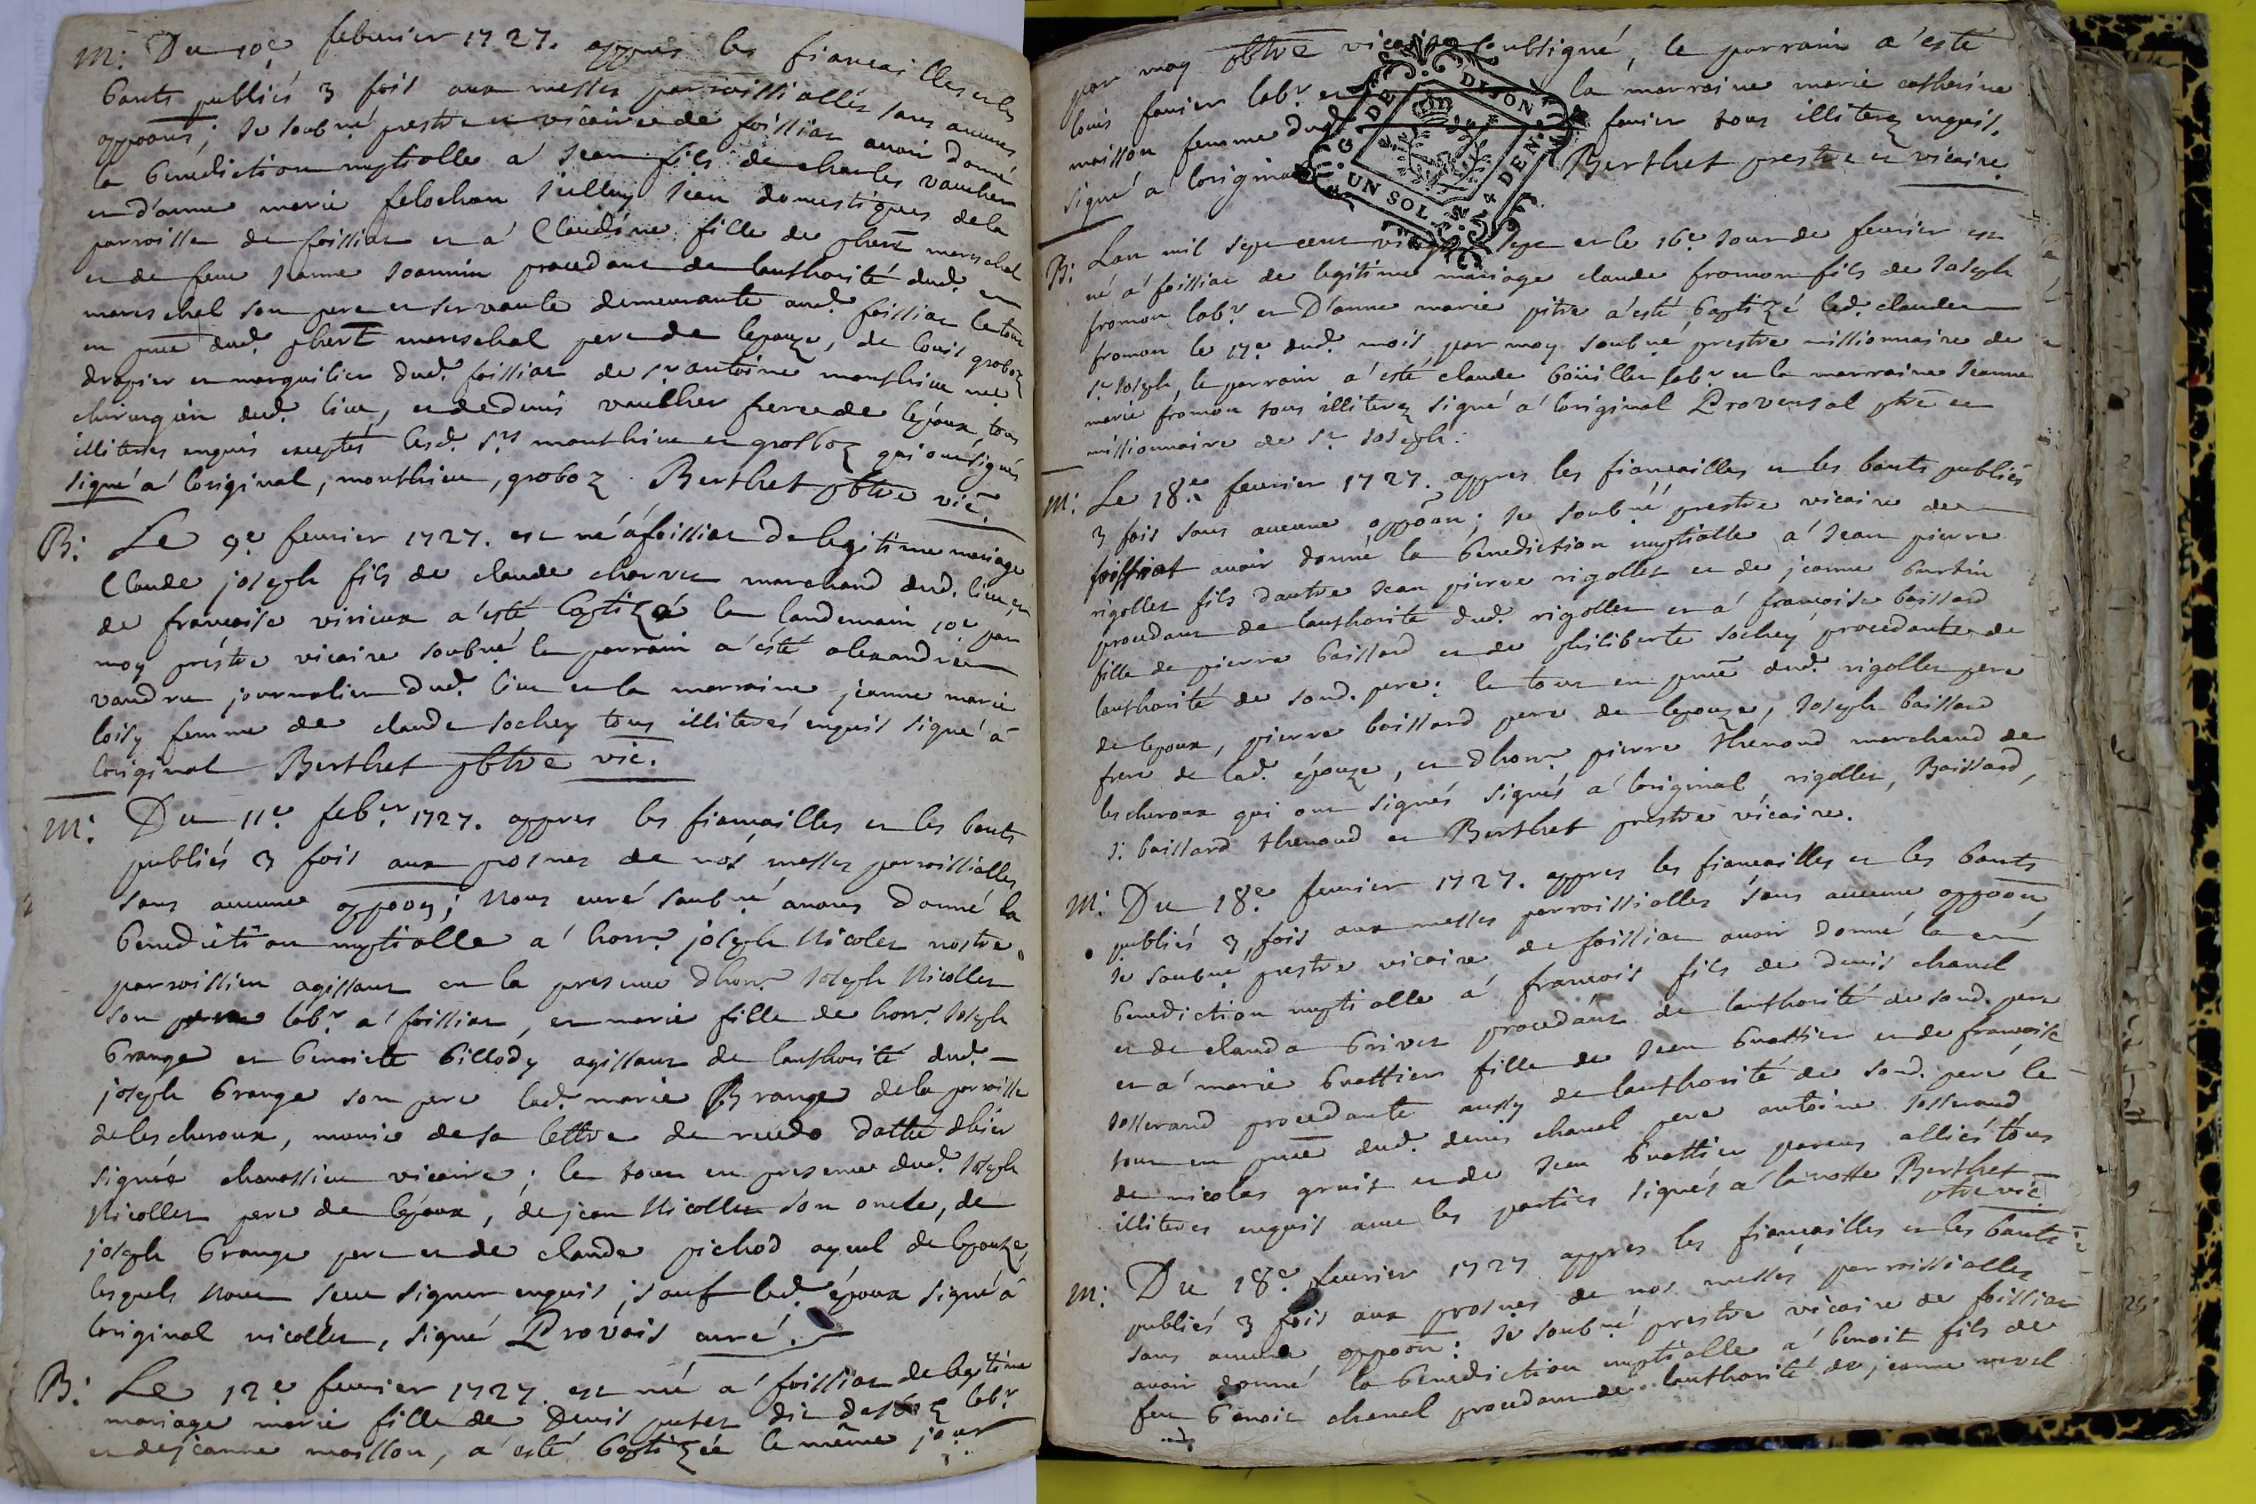 M: Du 10e febvrier 1727. appres les fiancailles et les
bants publiés 3 fois aux messes parroissialles sans aucunes
oppoons; Je soubné prestre et vicaire de foissiat avoir donné
la benediction nuptialle a Jean fils de charles vaucher
et d'anne marie felochon domestiques de la
parroisse de foissiat et a Claudine fille de phert mareschal
et de feue Jeanne Joannin procedant de lauthorité dud.
mareschal son pere et servante demeurante aud. foissiat le tout
en pnce dud. phert mareschal pere de lepouze, de Louis groboz
drapier et marguillier dud. foissiat de sr antoine monthieu me
chirurgien dud. lieu, et de denis vaucher frere de lépoux, tous
illiteres enquis exceptés lesd. srs monthieu et grosboz qui ont signés
signé a loriginal, monthieu, groboz Berthet pbtre vic.
B: Le 9e fevrier 1727. est né a foissiat de legitime mariage
Claude joseph fils de claude charvet marchand dud. lieu, et
de francoise virieux a esté baptizé le landemain 10e par
moy préstre vicaire soubné le parrain a ésté alexandre
vaudru journalier dud. lieu et la marraine jeanne marie
loisy femme de claude sochey tous illiterés enquis signé a
loriginal Berthet pbtre vic.
M: Du 11e febvr 1727. appres les fiancailles et les bants
publiés 3 fois aux prosnes de nos messes parroissialles
sans aucunes oppoons; Nous curé soubné avons donné la
benediction nuptialle a honn. joseph Nicolet nostre
parroissien agissant en la presence dhonn. Joseph Nicollet
son pere labr a foissiat, et marie fille de honn. Joseph
brange et benoiste billody agissant de lauthorité dud.
joseph brange son pere lad. marie Brange de la parroisse
de lescheroux, munie de sa lettre de recedo dattée dhier
signée chanossieu vicaire; le tout en presence dud. Joseph
Nicollet pere de lépoux, de jean Nicollet son oncle, de
joseph brange pere et de claude pichod ayeul de lepouze,
lesquels nont sceu signer enquis, sauf led. époux signé a
loriginal nicollet, signé Provois curé.
B: Le 12e fevrier 1727. est né a foissiat de legitime
mariage marie fille de Denis putet dit labr
et de jeanne moisson, a esté baptizée le même jour
par moy pbtre vicaire soubsigné, le parrain a esté
louis favier labr et la marraine marie catherine
moisson femme dud. favier tous illiterez enquis.
signé a loriginal Berthet prestre et vicaire.
G. DE DIJON
UN SOL. 4 DEN.
B: Lan mil sept cent vingt sept et le 16e Jour de fevrier est
né a foissiat de legitime mariage claude fromon fils de Joseph
fromon labr et D'anne marie pitre a esté baptizé led. claude
fromon le 17e dud. mois, par moy soubné prestre missionnaire de
st Joseph, le parrain a esté claude boüiller labr et la marraine Jeanne
marie fromon tous illiterez signé a loriginal Provensal ptre et
missionnaire de st Joseph.
M: Le 18e fevrier 1727. appres les fiancailles et les bants publiés
3 fois sans aucune oppoon; Je soubné prestre vicaire de
foissiat avoir donné la benediction nuptialle a Jean pierre
rigollet fils dautre Jean pierre rigollet et de jeanne burtin
procedant de lauthorité dud. rigollet et a francoise boissard
fille de pierre boissard et de philiberte sochey procedante de
lauthorité de sond. pere; le tout en pnce dud. rigollet pere
de lepoux, pierre boissard pere de lepouze, Joseph boissard
frere de lad. épouze, et dhonn. pierre thenoud marchand de
lescheroux qui ont signés signés a loriginal, rigollet, Boissard,
J: boissard thenoud et Berthet prestre vicaire.
M: Du 18e fevrier 1727. appres les fiancailles et les bants
publiés 3 fois aux messes parroissialles sans aucune oppoon
Je soubné prestre vicaire de foissiat avoir donné la
benediction nuptialle a francois fils de denis chanel
et de clauda brivet procedant de lauthorité de sond. pere
et a marie buattier fille de Jean buattier et de francoise
Josserand procedante aussy de lauthorité de sond. pere le
tout en pnce dud. denis chanel pere antoine Josserand
de nicolas gruit et de Jean buattier parens alliés tous
illiteres enquis avec les parties signés a la notte Berthet
ptre vic.
M: Du 18e fevrier 1727 appres les fiancailles et les bants
publiés 3 fois aux prosnes de nos messes parroissialles
sans aucune oppoon: Je soubné prestre vicaire de foissiat
avoir donné la benediction nuptialle a benoit fils de
feu benoit chanel procedant de lauthorité de jeanne revel